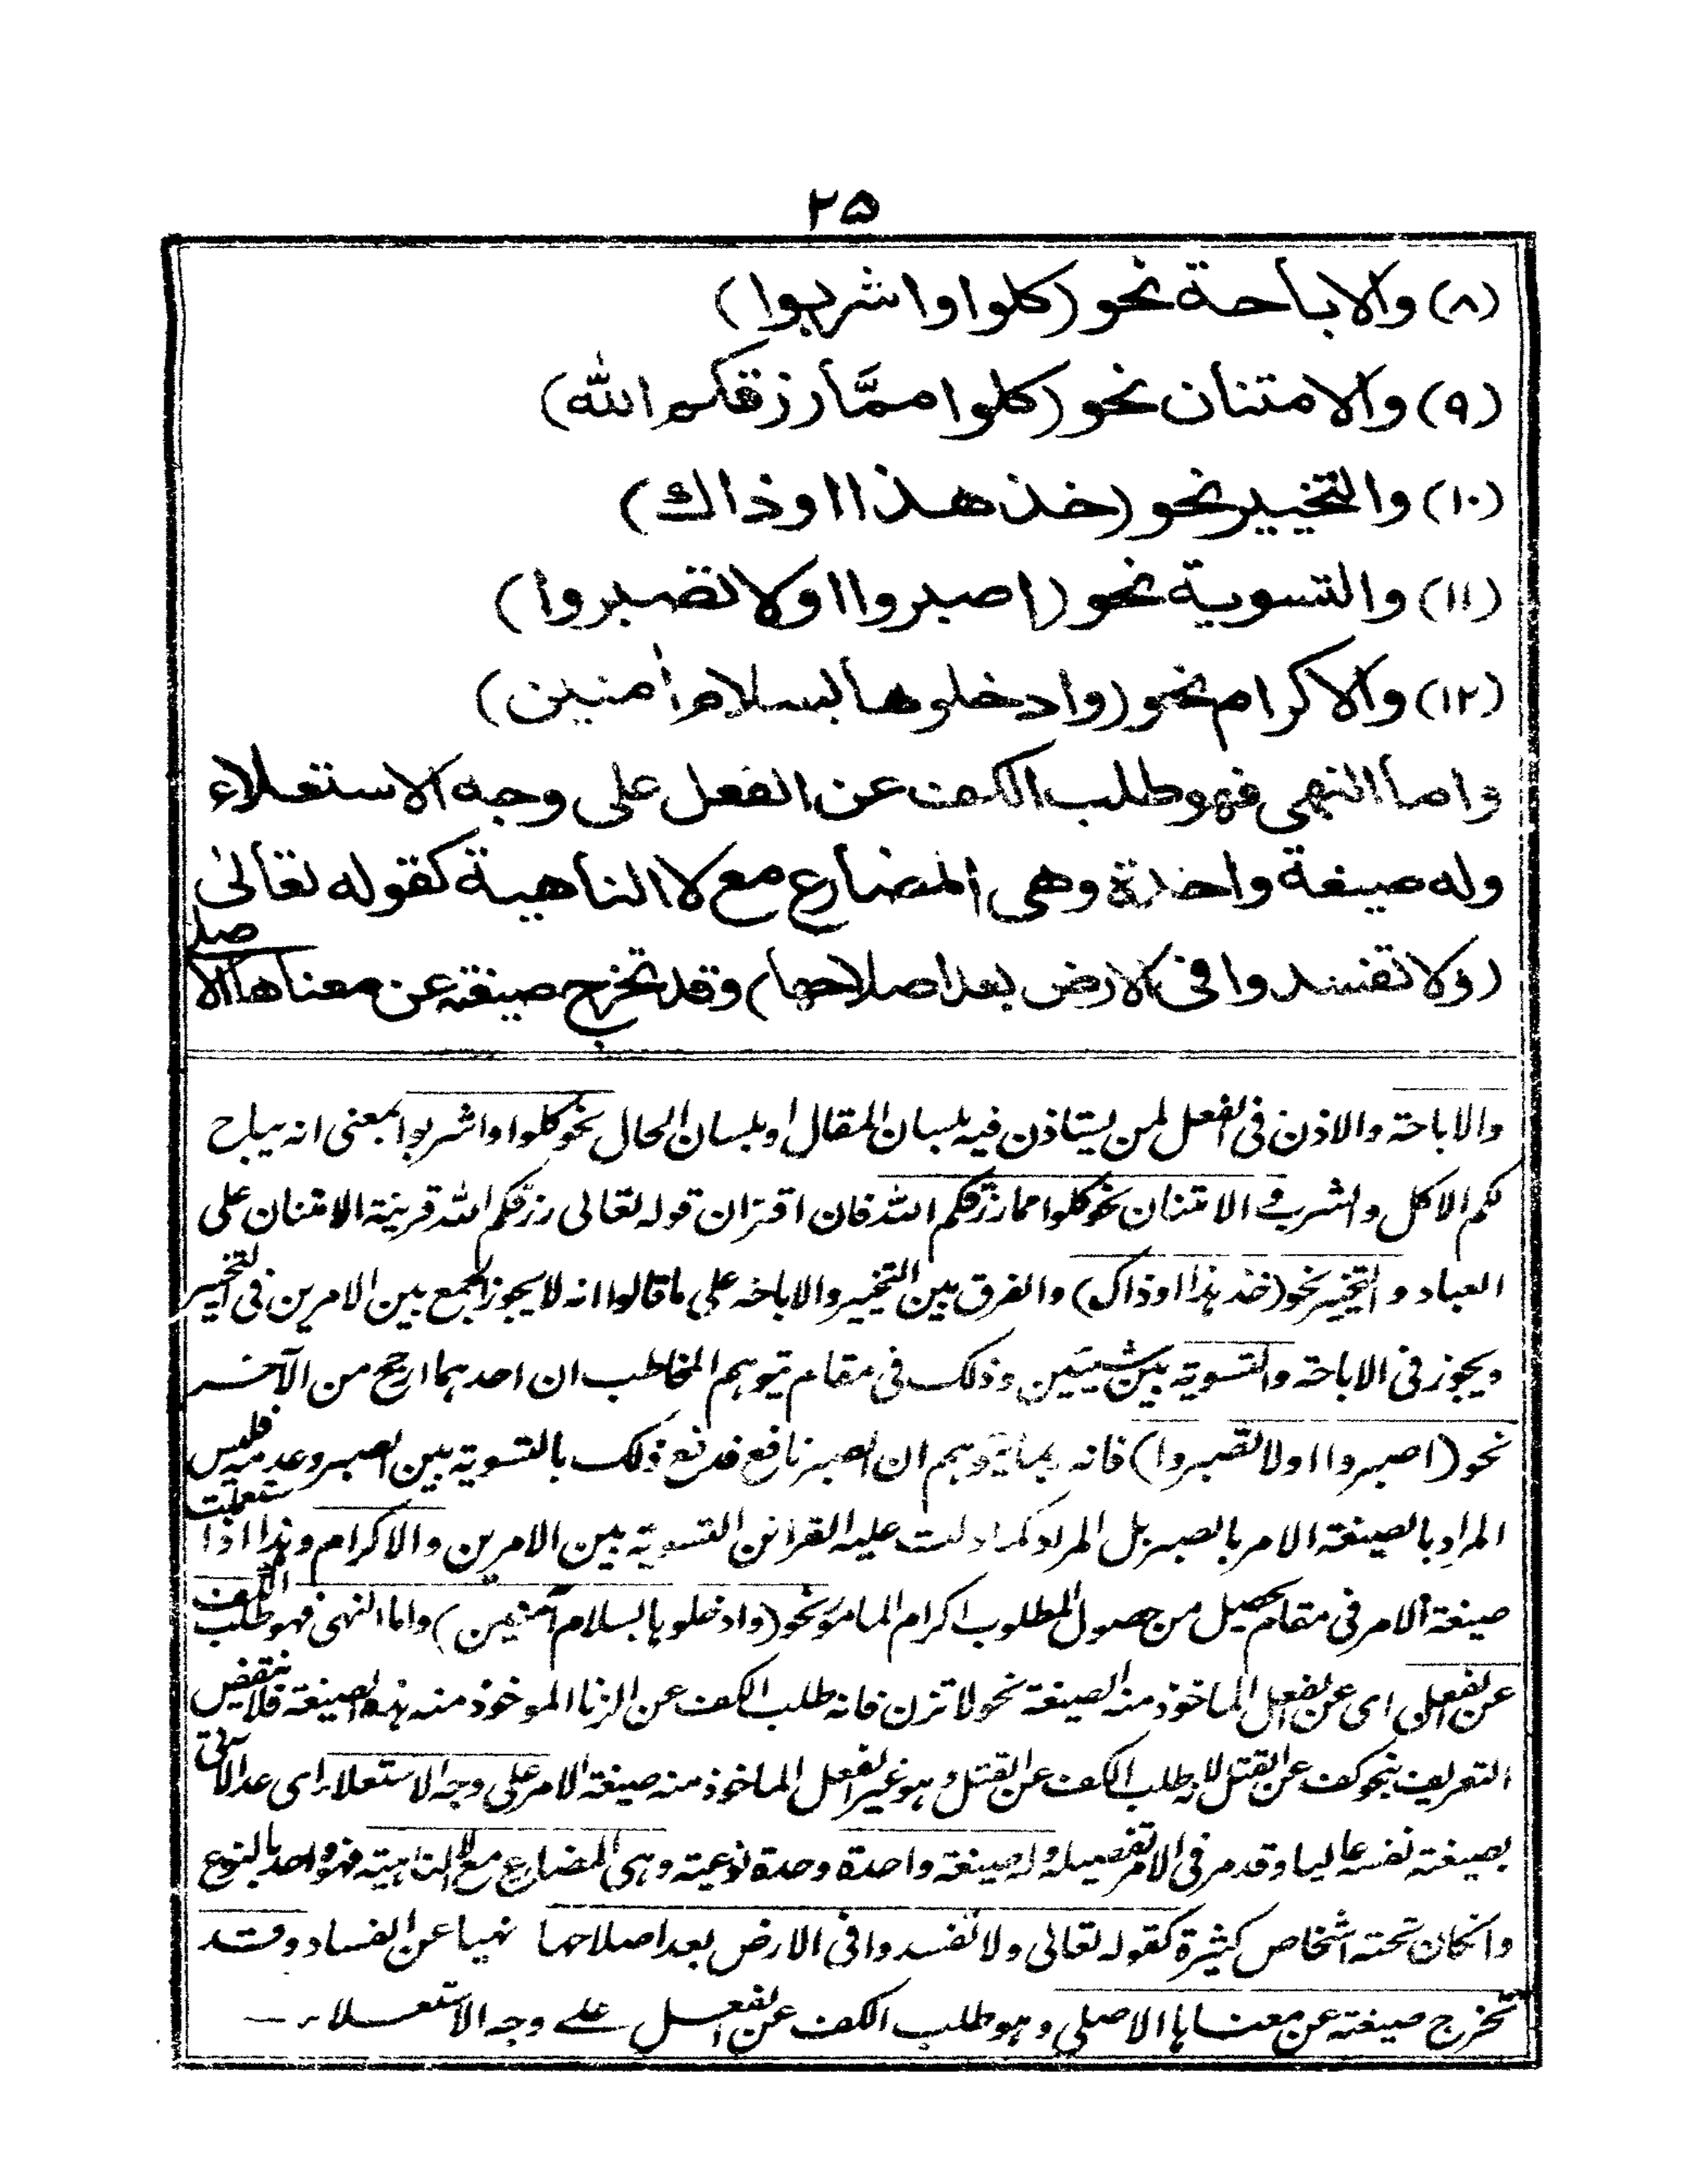 ۲۵
(۸) والاباحة نحو (كلوا واشربوا)
(۹) والامتنان نحو (كلوا ممّا رزقكم الله)
(۱۰) والتخيير نحو (خذ هذا او ذاك)
(۱۱) والتسوية نحو (اصبروا او لا تصبروا)
(۱۲) والاكرام نحو (وادخلوها بسلام اٰمنين)
واما النهى فهو طلب الكف عن الفعل على وجه الاستعلاء
وله صيغة واحدة وهى المضارع مع لا الناهية كقوله تعالىٰ
(ولا تفسدوا فى الارض بعد اصلاحها) وقد تخرج صيغته عن معناها الاصلى
والاباحة والاذن فى الفعل لمن يستاذن فيه بلسان المقال او بلسان الحال نحو كلوا واشربوا بمعنى انه يباح
لكم الاكل والشرب والامتنان نحو كلوا مما رزقكم الله فان اقتران قوله تعالى رزقكم الله قرينة الامتنان على
العباد والتخيير نحو (خذ هذا او ذاك) والفرق بين التخيير والاباحة على ما قالوا انه لا يجوز الجمع بين الامرين فى التخيير
ويجوز فى الاباحة والتسوية بين شيئين وذلك فى مقام يتوهم المخاطب ان احدهما ارجح من الآخر
نحو (اصبروا او لا تصبروا) فانه ربما يتوهم ان الصبر نافع فدفع ذلك بالتسوية بين الصبر وعدمه فليس
المراد بالصيغة الامر بالصبر بل المراد كما دلت عليه القرائن التسوية بين الامرين والاكرام وهذا اذا استعملت
صيغة الامر فى مقام يحصل من حصول المطلوب اكرام المامور نحو (وادخلوها بالسلام آمنين) واما النهى فهو طلب الكف
عن الفعل اى عن الفعل الماخوذ منه الصيغة نحو لا تزن فانه طلب الكف عن الزنا الموخوذ منه هذه الصيغة فلا ينتقض
التعريف بنحو كف عن القتل لانه طلب الكف عن القتل وهو غير الفعل الماخوذ منه صيغة الامر على وجه الاستعلاء اى عد الآتى
بصيغته نفسه عاليا وقد مر فى الامر تفصيله وله صيغة واحدة وحدة نوعية وهى المضارع مع لا الناهية فهو واحد بالنوع
وانكان تحته اشخاص كثيرة كقوله تعالى ولا تفسدوا فى الارض بعد اصلاحها نهيا عن الفساد وقد
تخرج صيغته عن معناها الاصلى وهو طلب الكف عن الفعل على وجه الاستعلاء